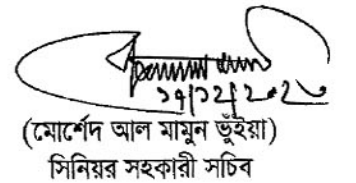 ১৭/১২/২০২০
(মোর্শেদ আল মামুন ভূঁইয়া)
সিনিয়র সহকারী সচিব